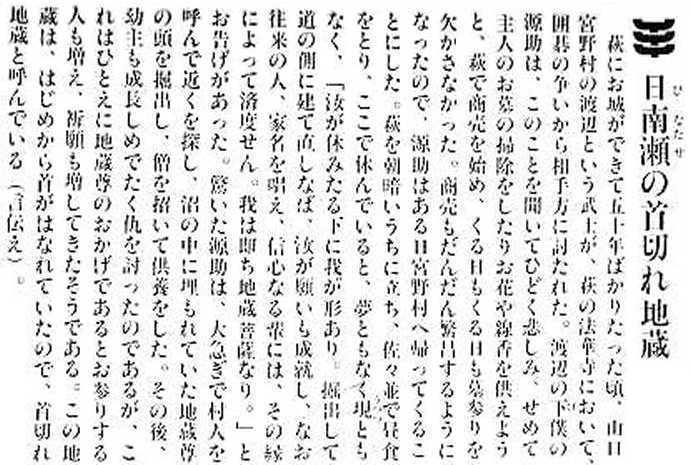 日南瀬の首切れ地蔵
ひなたせ
萩にお城ができて五十年ばかりたった頃、山口
宮野村の渡辺という武士が、萩の法華寺において、
囲碁の争いから相手方に討たれた。渡辺の下僕の
源助は、このことを聞いてひどく悲しみ、せめて
主人のお墓の掃除をしたりお花や線香を供えよう
と、萩で商売を始め、くる日もくる日も墓参りを
欠かさなかった。商売もだんだん繁昌するように
なったので、源助はある日宮野村へ帰ってくるこ
とにした。萩を朝暗いうちに立ち、佐々並で昼食
をとり、ここで休んでいると、夢ともなく現とも
なく、「汝が休みたる下に我が形あり。掘出して
道の側に建て直しなば、汝が願いも成就し、なお
往来の人、家名を唱え、信心なる輩には、その縁
によって済度せん。我は即ち地蔵菩薩なり。」と
お告げがあった。驚いた源助は、大急ぎで村人を
呼んで近くを探し、沼の中に埋もれていた地蔵尊
の頭を掘出し、僧を招いて供養をした。その後、
幼主も成長しめでたく仇を討ったのであるが、こ
れはひとえに地蔵尊のおかげであるとお参りする
人も増え、祈願も増してきたそうである。この地
蔵は、はじめから首がはなれていたので、首切れ
地蔵と呼んでいる（言伝え）。